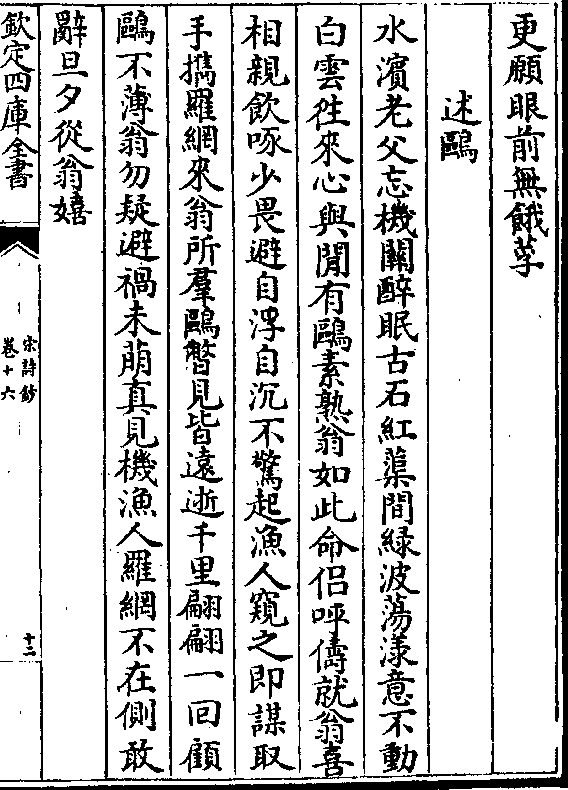 更願眼前無餓莩
述鷗
水濱老父忘機關醉眠古石紅蕖間緑波蕩漾意不動
白雲徃來心與閒有鷗素熟翁如此命侣呼儔就翁喜
相親飲啄少畏避自浮自沉不驚起漁人窺之即謀取
手攜羅網來翁所羣鷗瞥見皆遠逝千里翩翩一回顧
鷗不薄翁勿疑避禍未萌真見機漁人羅網不在側敢
辭旦夕從翁嬉
欽定四庫全書
宋詩鈔
卷十六
十二